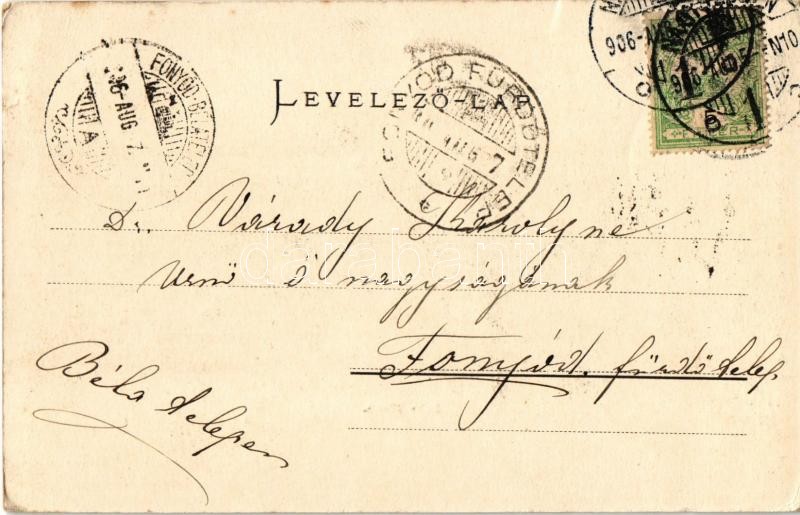 LEVELEZŐ-LAP
FONYÓD-BÉLATELEP
906 AUG 7
FONYÓD FÜRDŐTELEP
906
7
906
N10
1
1
FILLÉR
Dr. Várady Károlyné
Urnő ő nagyságának
Fonyód. fürdőtelep
Béla telepen
darabanth